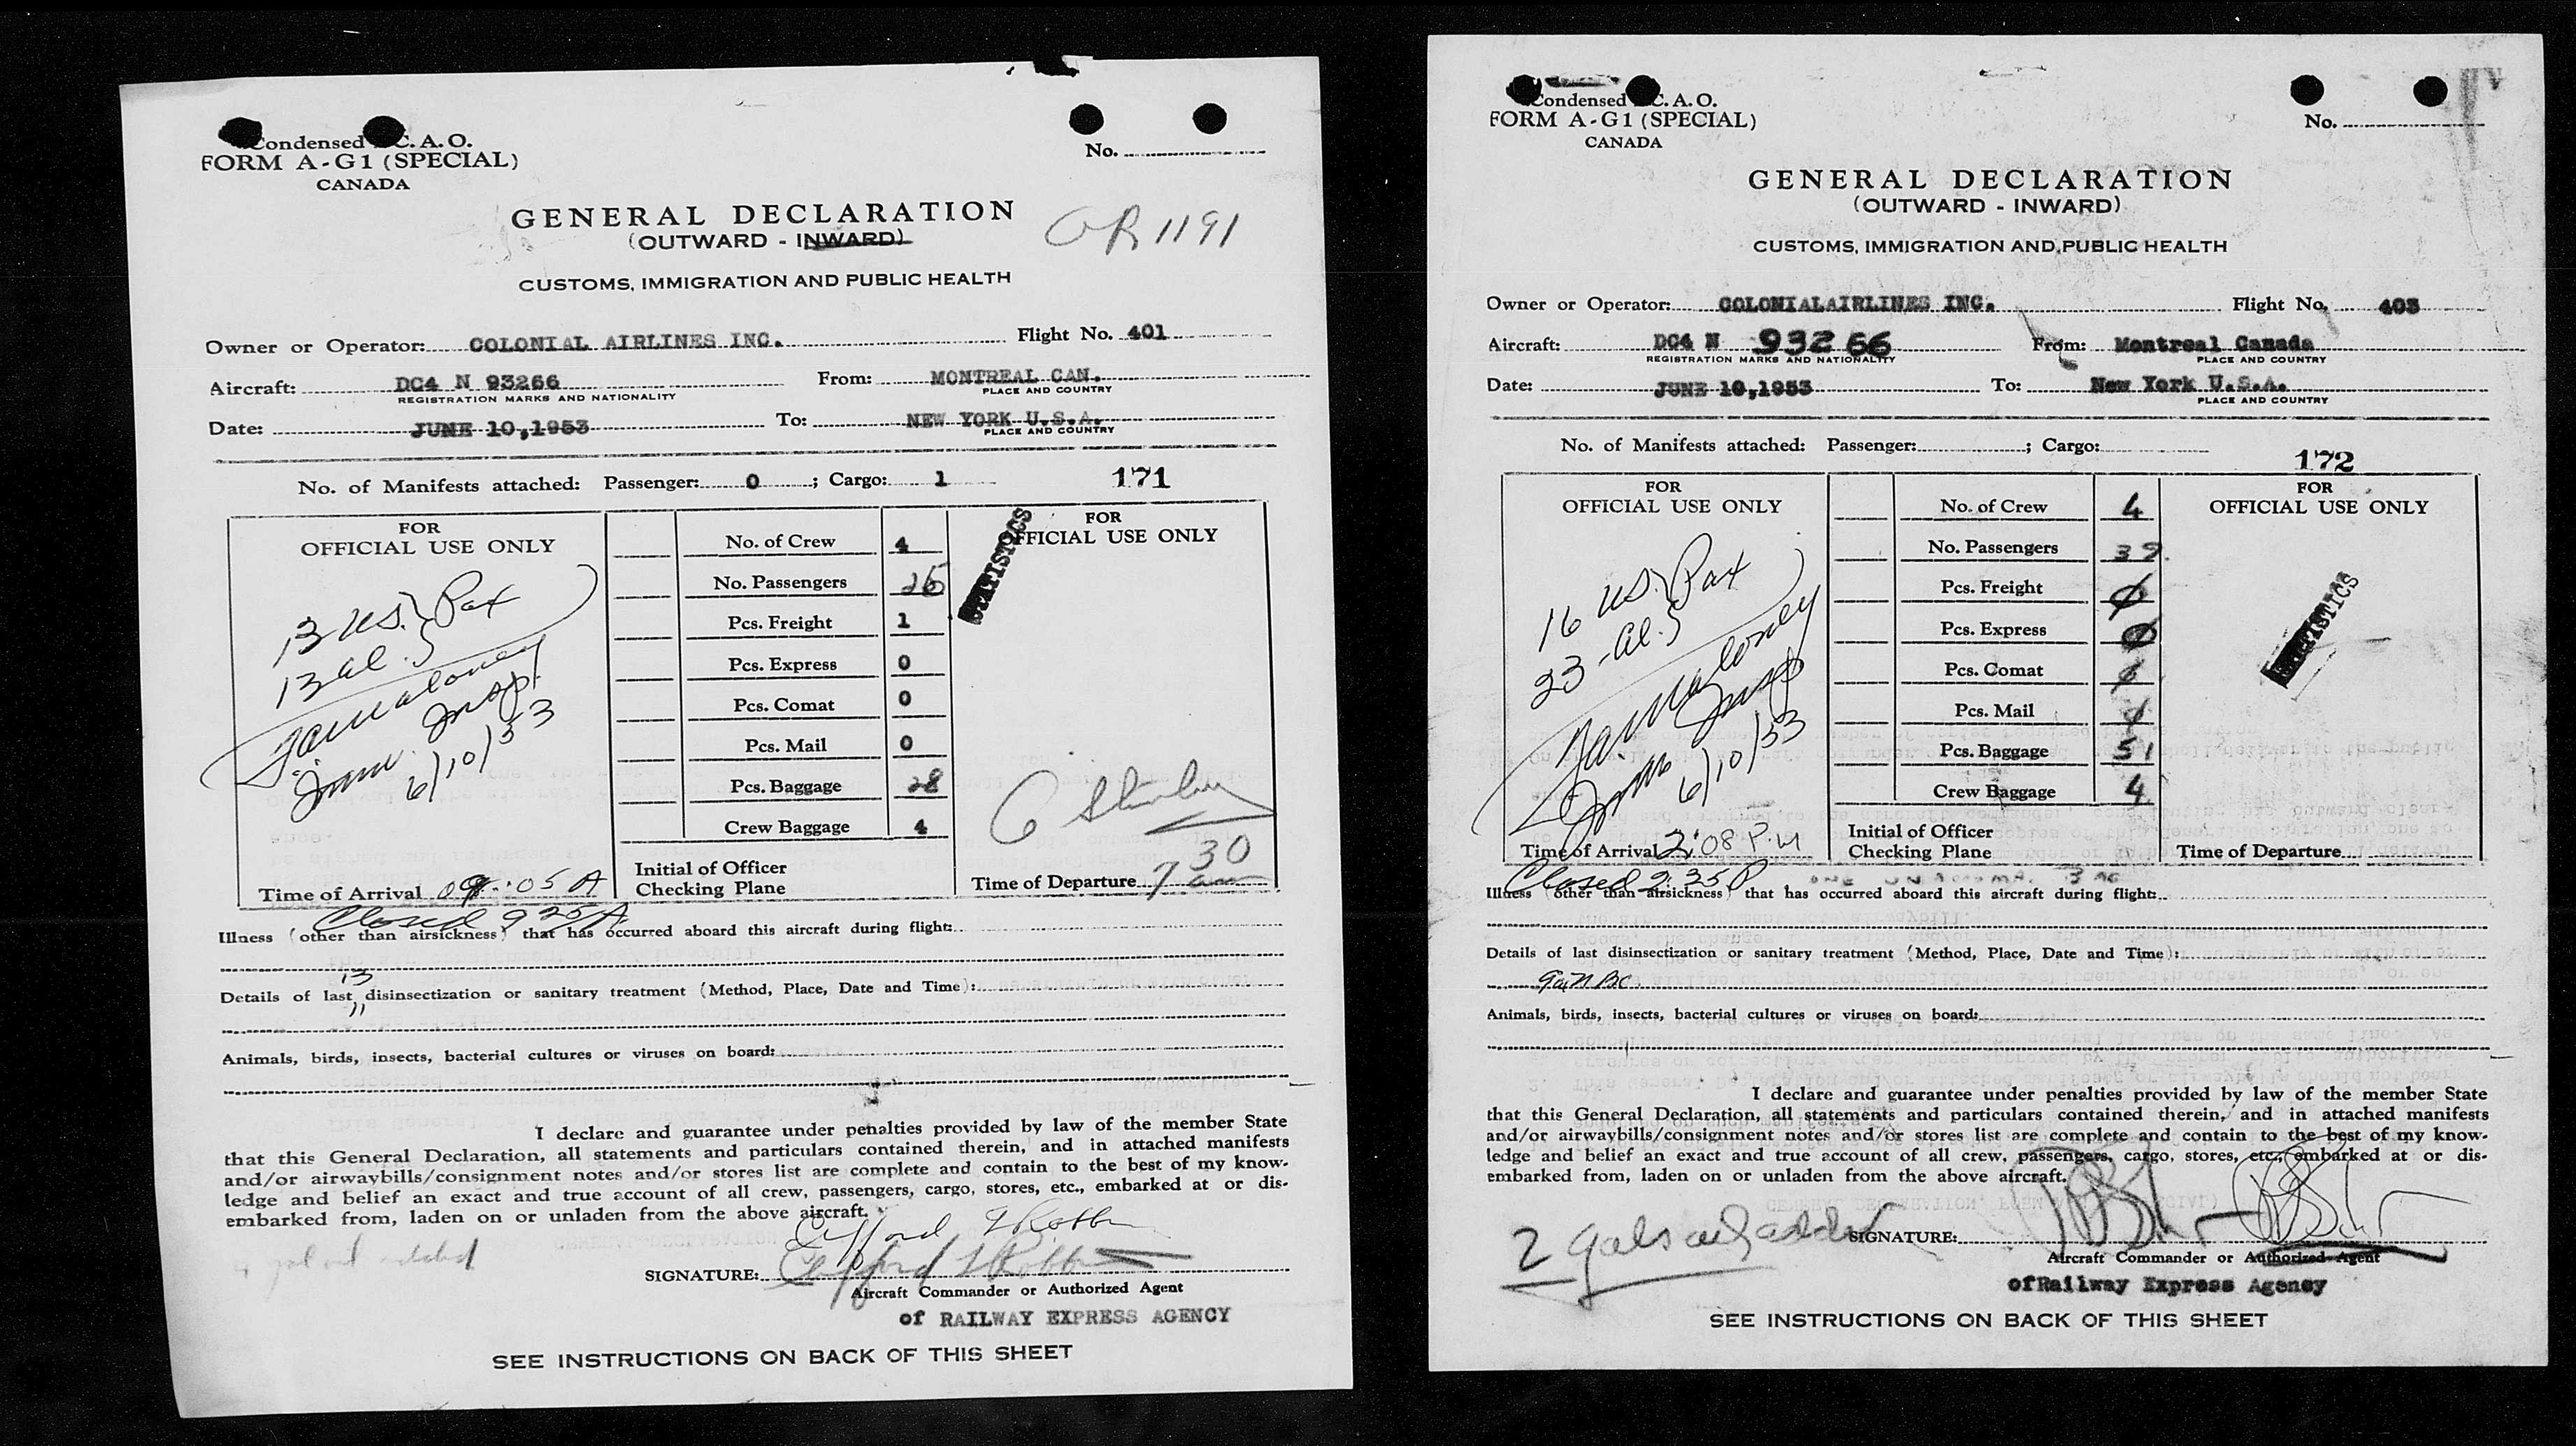 Condensed C. A. O.
FORM A-G1 (SPECIAL)
CANADA
No.
GENERAL DECLARATION
(OUTWARD - INWARD)
OR 1191
CUSTOMS, IMMIGRATION AND PUBLIC HEALTH
Owner or Operator: COLONIAL AIRLINES INC. Flight No. 401
Aircraft: DC4 N 93266 From: MONTREAL CAN.
REGISTRATION MARKS AND NATIONALITY PLACE AND COUNTRY
Date: JUNE 10,1953 To: NEW YORK U.S.A.
PLACE AND COUNTRY
No. of Manifests attached: Passenger: 0 ; Cargo: 1 171
FOR
OFFICIAL USE ONLY
13 US. } Pax
13 al. }
Insp.
Imm.
6/10/53
Time of Arrival 09:05 A
Closed 9 25 A
No. of Crew 4
No. Passengers 26
Pcs. Freight 1
Pcs. Express 0
Pcs. Comat 0
Pcs. Mail 0
Pcs. Baggage 28
Crew Baggage 4
Initial of Officer
Checking Plane
FOR
OFFICIAL USE ONLY
STATISTICS
Time of Departure 7 30 am
Illness (other than airsickness) that has occurred aboard this aircraft during flight:
13
Details of last disinsectization or sanitary treatment (Method, Place, Date and Time):
11
Animals, birds, insects, bacterial cultures or viruses on board:
I declare and guarantee under penalties provided by law of the member State
that this General Declaration, all statements and particulars contained therein, and in attached manifests
and/or airwaybills/consignment notes and/or stores list are complete and contain to the best of my know-
ledge and belief an exact and true account of all crew, passengers, cargo, stores, etc., embarked at or dis-
embarked from, laden on or unladen from the above aircraft.
Clifford
SIGNATURE: Clifford
Aircraft Commander or Authorized Agent
of RAILWAY EXPRESS AGENCY
SEE INSTRUCTIONS ON BACK OF THIS SHEET
Condensed C. A. O.
FORM A-G1 (SPECIAL)
CANADA
No.
GENERAL DECLARATION
(OUTWARD - INWARD)
CUSTOMS, IMMIGRATION AND PUBLIC HEALTH
Owner or Operator: COLONIALAIRLINES INC. Flight No. 403
Aircraft: DC4 N 93266 From: Montreal Canada
REGISTRATION MARKS AND NATIONALITY PLACE AND COUNTRY
Date: JUNE 10,1953 To: New York U.S.A.
PLACE AND COUNTRY
No. of Manifests attached: Passenger: ; Cargo:
172
FOR
OFFICIAL USE ONLY
16 US. } Pax
23 - al. }
Insp
Imm
6/10/53
Time of Arrival 2:08 P.M
Closed 2:35 P
No. of Crew 4
No. Passengers 39
Pcs. Freight 0
Pcs. Express 0
Pcs. Comat 0
Pcs. Mail 0
Pcs. Baggage 51
Crew Baggage 4
Initial of Officer
Checking Plane
FOR
OFFICIAL USE ONLY
STATISTICS
Time of Departure
Illness (other than airsickness) that has occurred aboard this aircraft during flight:
Details of last disinsectization or sanitary treatment (Method, Place, Date and Time):
Animals, birds, insects, bacterial cultures or viruses on board:
I declare and guarantee under penalties provided by law of the member State
that this General Declaration, all statements and particulars contained therein, and in attached manifests
and/or airwaybills/consignment notes and/or stores list are complete and contain to the best of my know-
ledge and belief an exact and true account of all crew, passengers, cargo, stores, etc., embarked at or dis-
embarked from, laden on or unladen from the above aircraft.
2 gals oil added
SIGNATURE:
Aircraft Commander or Authorized Agent
ofRailway Express Agency
SEE INSTRUCTIONS ON BACK OF THIS SHEET